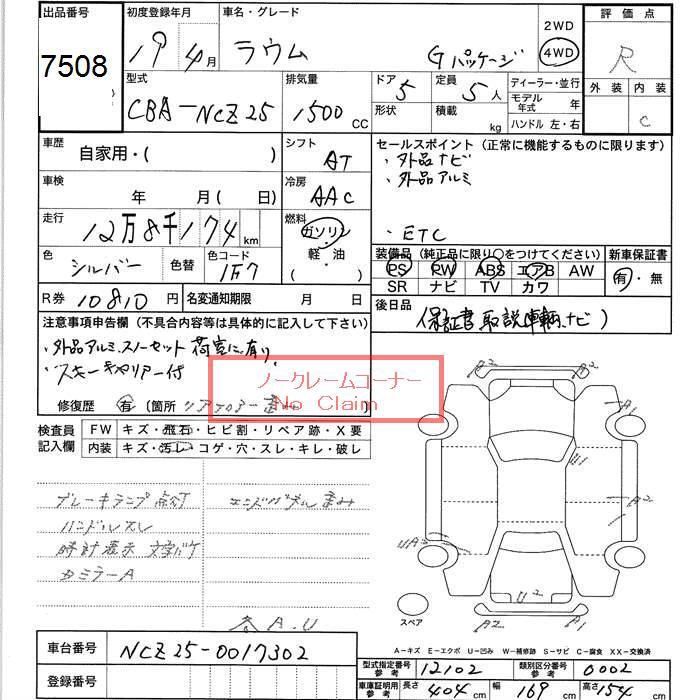 出品番号 7508
初度登録年月 19年 4月
車名・グレード ラウム Gパッケージ
2WD
4WD
評価点 R
外装 内装 C
型式 CBA-NCZ25
排気量 1500 CC
ドア 5 形状
定員 5人 積載 kg
ディーラー・並行
モデル年式 年
ハンドル 左・右
車歴 自家用・( )
シフト AT
セールスポイント(正常に機能するものに限ります)
・外品ナビ
・外品アルミ
・ETC
車検 年 月( 日)
冷房 AAC
走行 12万8千174km
燃料 ガソリン
軽油
・( )
色 シルバー 色替 色コード 1F7
装備品(純正品に限り○をつけてください)
PS PW ABS エアB AW
SR ナビ TV カワ
新車保証書 有・無
R券 10810円 名変通知期限 月 日
後日品 保証書 取説 車輌、ナビ)
注意事項申告欄(不具合内容等は具体的に記入して下さい)
・外品アルミ、スノーセット 荷室に有り
・スキーキャリアー付
ノークレームコーナー
No Claim
修復歴 有 (箇所
検査員記入欄
FW キズ・飛石・ヒビ割・リペア跡・X要
内装 キズ・汚レ・コゲ・穴・スレ・キレ・破レ
ブレーキランプ点灯 エンドパネル歪み
ハンドルスレ
時計表示 文字バケ
カミラーA
A2 A2 A1
U1
A2
UA3
U2
A2 A1
スペア
A-キズ E-エクボ U-凹み W-補修跡 S-サビ C-腐食 XX-交換済
車台番号 NCZ25-0017302
登録番号
型式指定番号 参考 12102
類別区分番号 参考 0002
車庫証明用 参考 長さ 404cm 幅 169cm 高さ 154cm